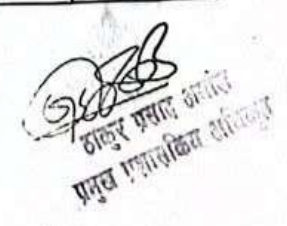 ठाकुर प्रसाद
प्रमुख प्रशासकिय अधिकृत